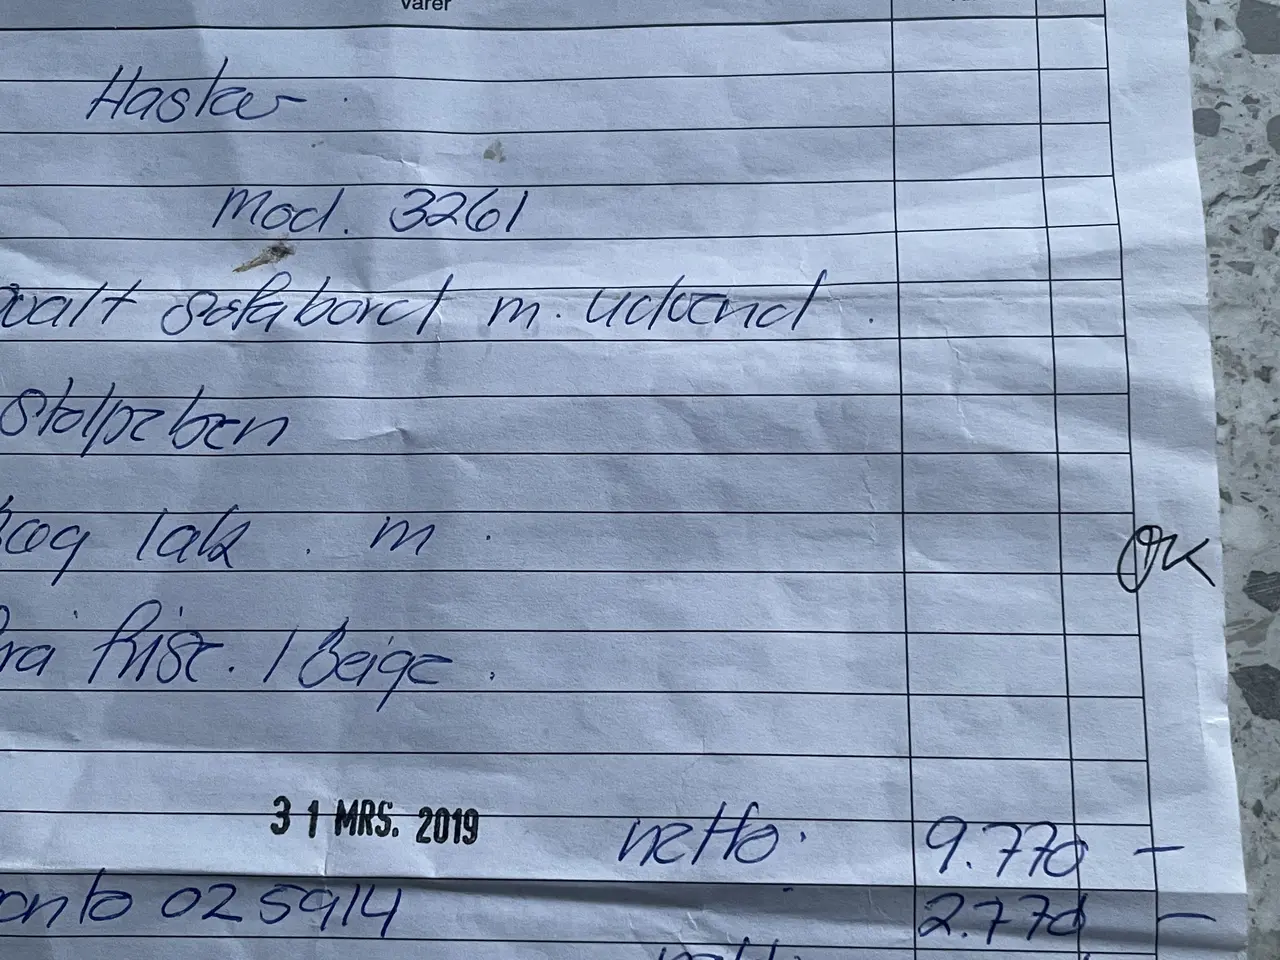 varer
Haslev
Mod. 3261
ovalt sofabord m. udvend.
stolpeben
lak. m.
/ Beige.
OK
31 MRS. 2019
netto. 9.770 -
onto 025914 2.770 -